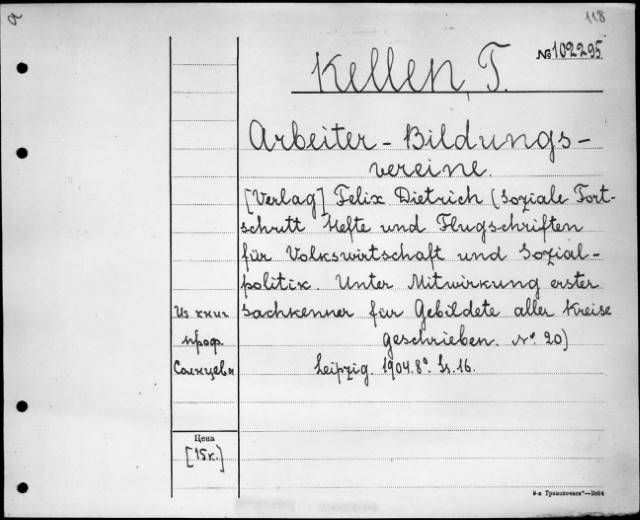 118
№ 102295
Kellen, T.
Arbeiter-Bildungs-
vereine.
[Verlag] Felix Dietrich (Soziale Fort-
schritt Hefte und Flugschriften
für Volkswirtschaft und Sozial-
politik. Unter Mitwirkung erster
Sachkenner für Gebildete aller Kreise
geschrieben. No. 20)
Leipzig. 1904. 8°. Ss. 16.
Из книг
проф.
Солнцева
Цена
[15к.]